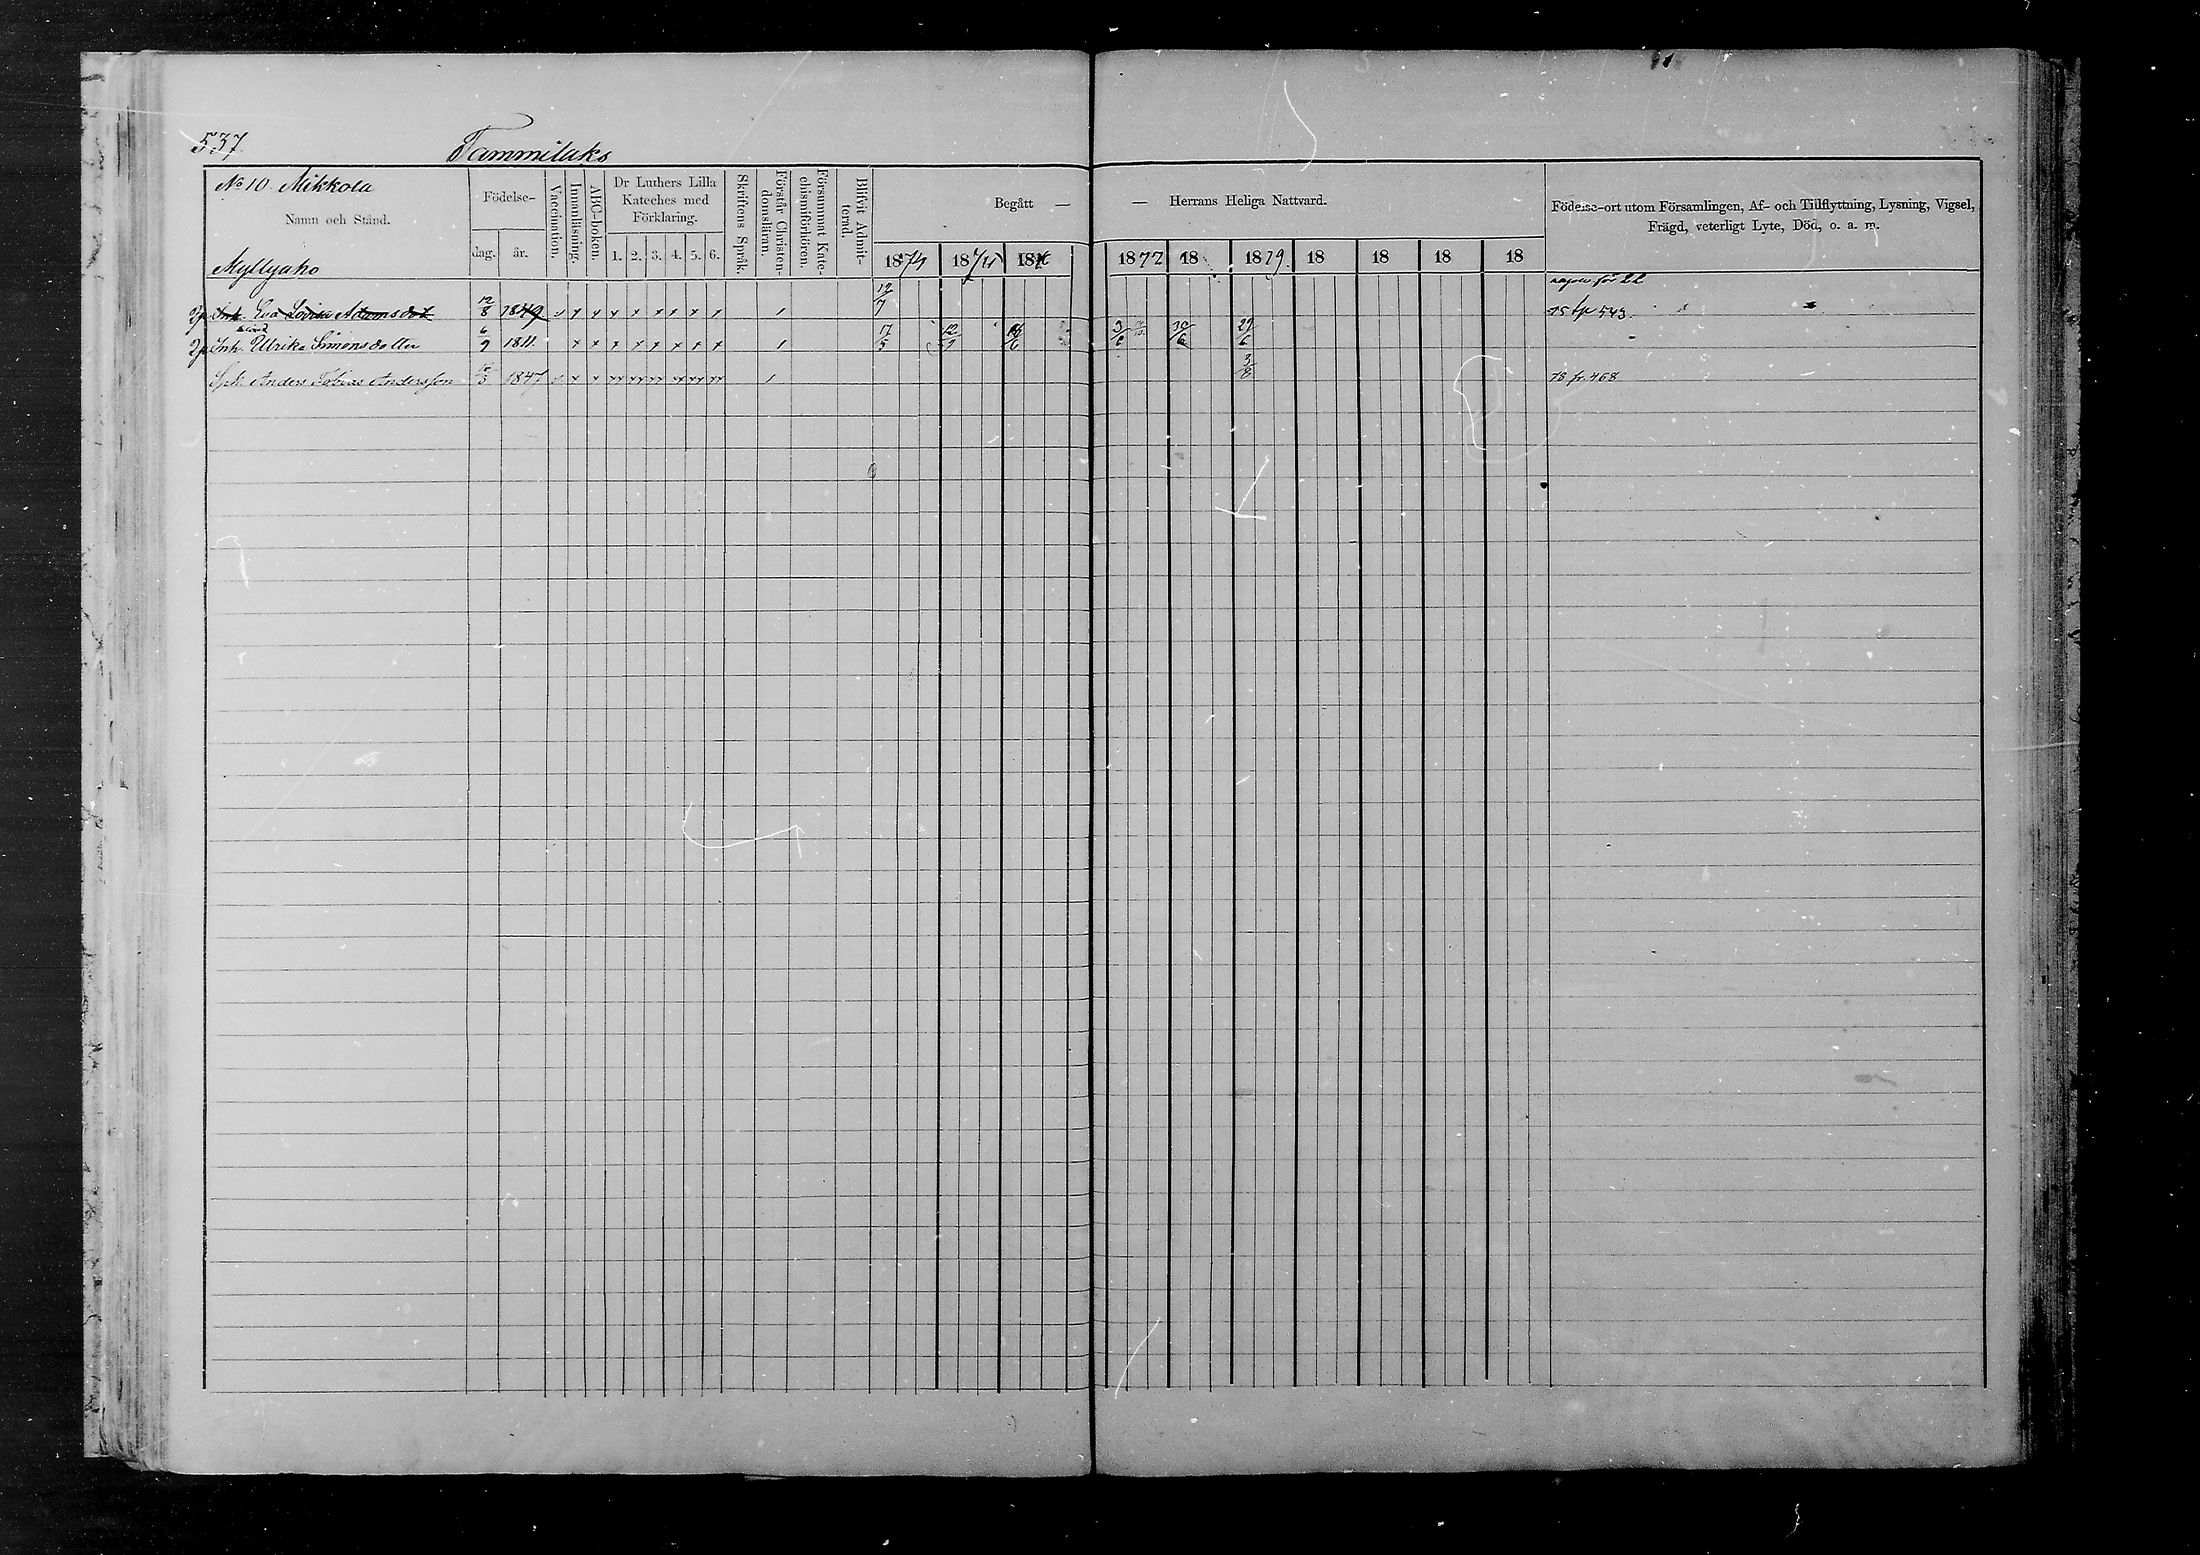 537
Tammiluks
No 10 Mikkola
Namn och Stånd.
Myllyaho
Födelse-
dag. år.
Vaccination.
Innanläsning.
ABC-boken.
Dr Luthers Lilla
Kateches med
Förklaring.
1. 2. 3. 4. 5. 6.
Skriftens Språk.
Förstår Christen-
domsläran.
Försummat Kate-
chismiförhören.
Blifvit Admit-
terad.
Begått — — Herrans Heliga Nattvard.
1874 1875 1876 1877 18 1879 18 18 18 18
Födelse-ort utom Församlingen, Af- och Tillflyttning, Lysning, Vigsel,
Frägd, veterligt Lyte, Död, o. a. m.
Inh. Eva Lovisa Adamsdot 12/8 1849 x x x x x x x x 12/7 75 tp 543.
Inh. Ulrika Simonsdotter 6/9 1811. x x x x x x x x 17/5 3/6 30/6 29/6
Sph. Anders Tobias Andersson 1847 3/8 78 fr. 468